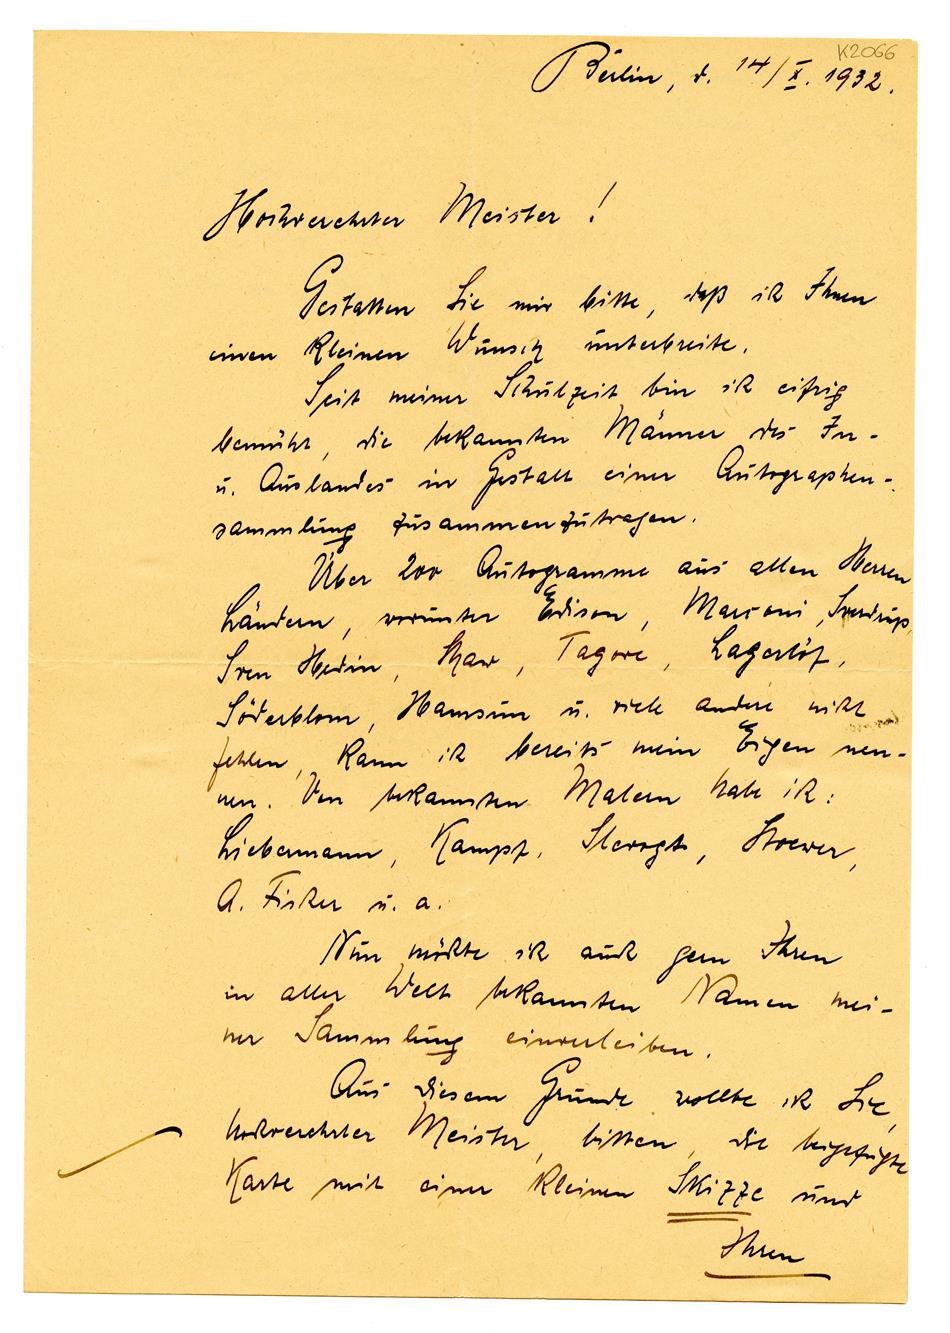 K2066
Berlin, d. 14/X. 1932.
Hochverehrter Meister!
Gestatten Sie mir bitte, daß ich Ihnen
einen kleinen Wunsch unterbreite.
Seit meiner Schulzeit bin ich eifrig
bemüht, die bekannten Männer des In-
u. Auslandes in Gestalt einer Autographen-
sammlung zusammenzutragen.
Über 200 Autogramme aus allen Herren
Ländern, worunter Edison, Marconi, Sverdrup,
Sven Hedin, Shaw, Tagore, Lagerlöf,
Söderblom, Hamsun u. viele andere nicht
fehlen, kann ich bereits mein Eigen nen-
nen. Von bekannten Malern habe ich:
Liebermann, Kampf, Slevogt, Stoewer,
A. Fischer u. a.
Nun möchte ich auch gern Ihren
in aller Welt bekannten Namen mei-
ner Sammlung einverleiben.
Aus diesem Grunde wollte ich Sie,
hochverehrter Meister, bitten, die beigefügte
Karte mit einer kleinen Skizze und
Ihren